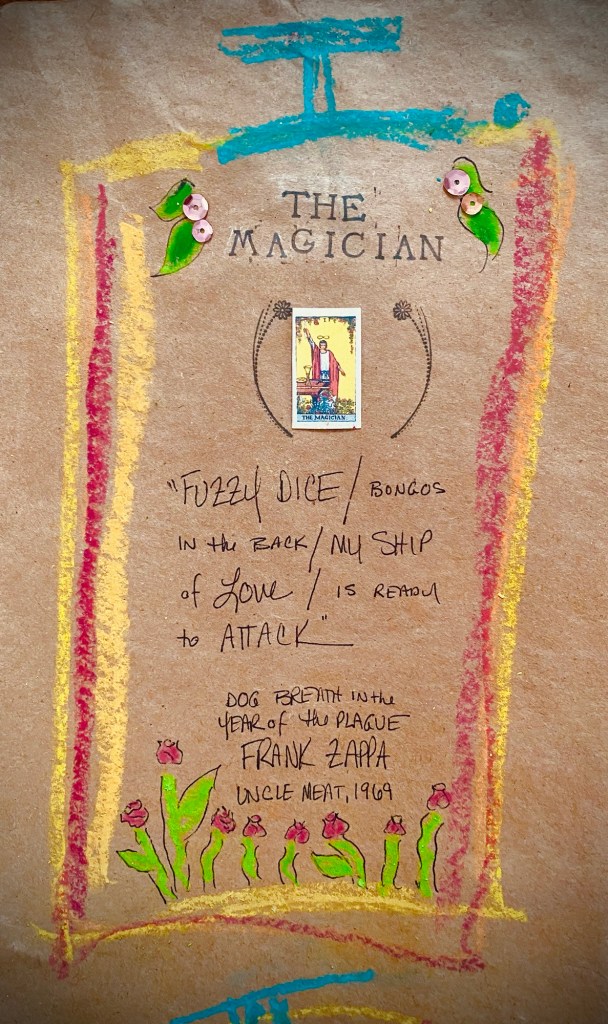 I.
THE
MAGICIAN
THE MAGICIAN
"FUZZY DICE / BONGOS
IN the BACK / MY SHIP
of Love / IS READY
to ATTACK"
DOG BREATH IN the
YEAR of the PLAGUE
FRANK ZAPPA
UNCLE MEAT, 1969